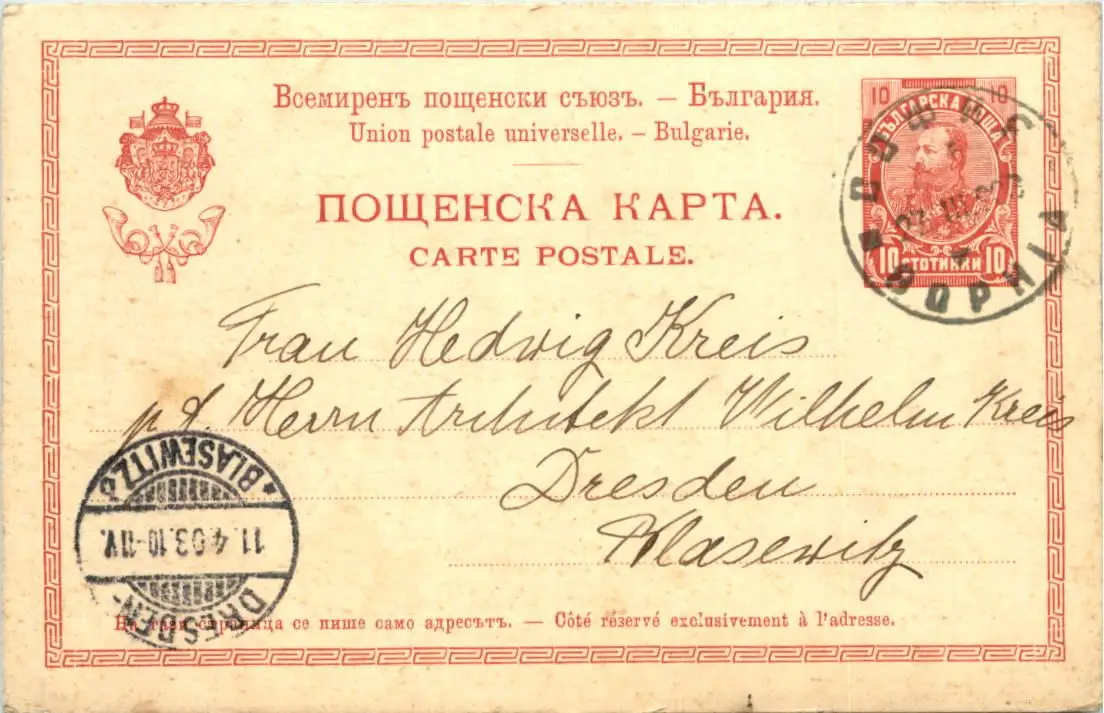 Всемиренъ пощенски съюзъ. — България.
Union postale universelle. — Bulgarie.
ПОЩЕНСКА КАРТА.
CARTE POSTALE.
10 10
БЪЛГАРСКА ПОЩА
10 СТОТИНКИ 10
СОФИЯ
SOPHIA
Frau Hedwig Kreis
p. A. Herrn Architekt Wilhelm Kreis
Dresden
Blasewitz
DRESDEN-
11.4.03.10-11V.
*BLASEWITZ
На тази страница се пише само адресътъ. — Côté réservé exclusivement à l'adresse.